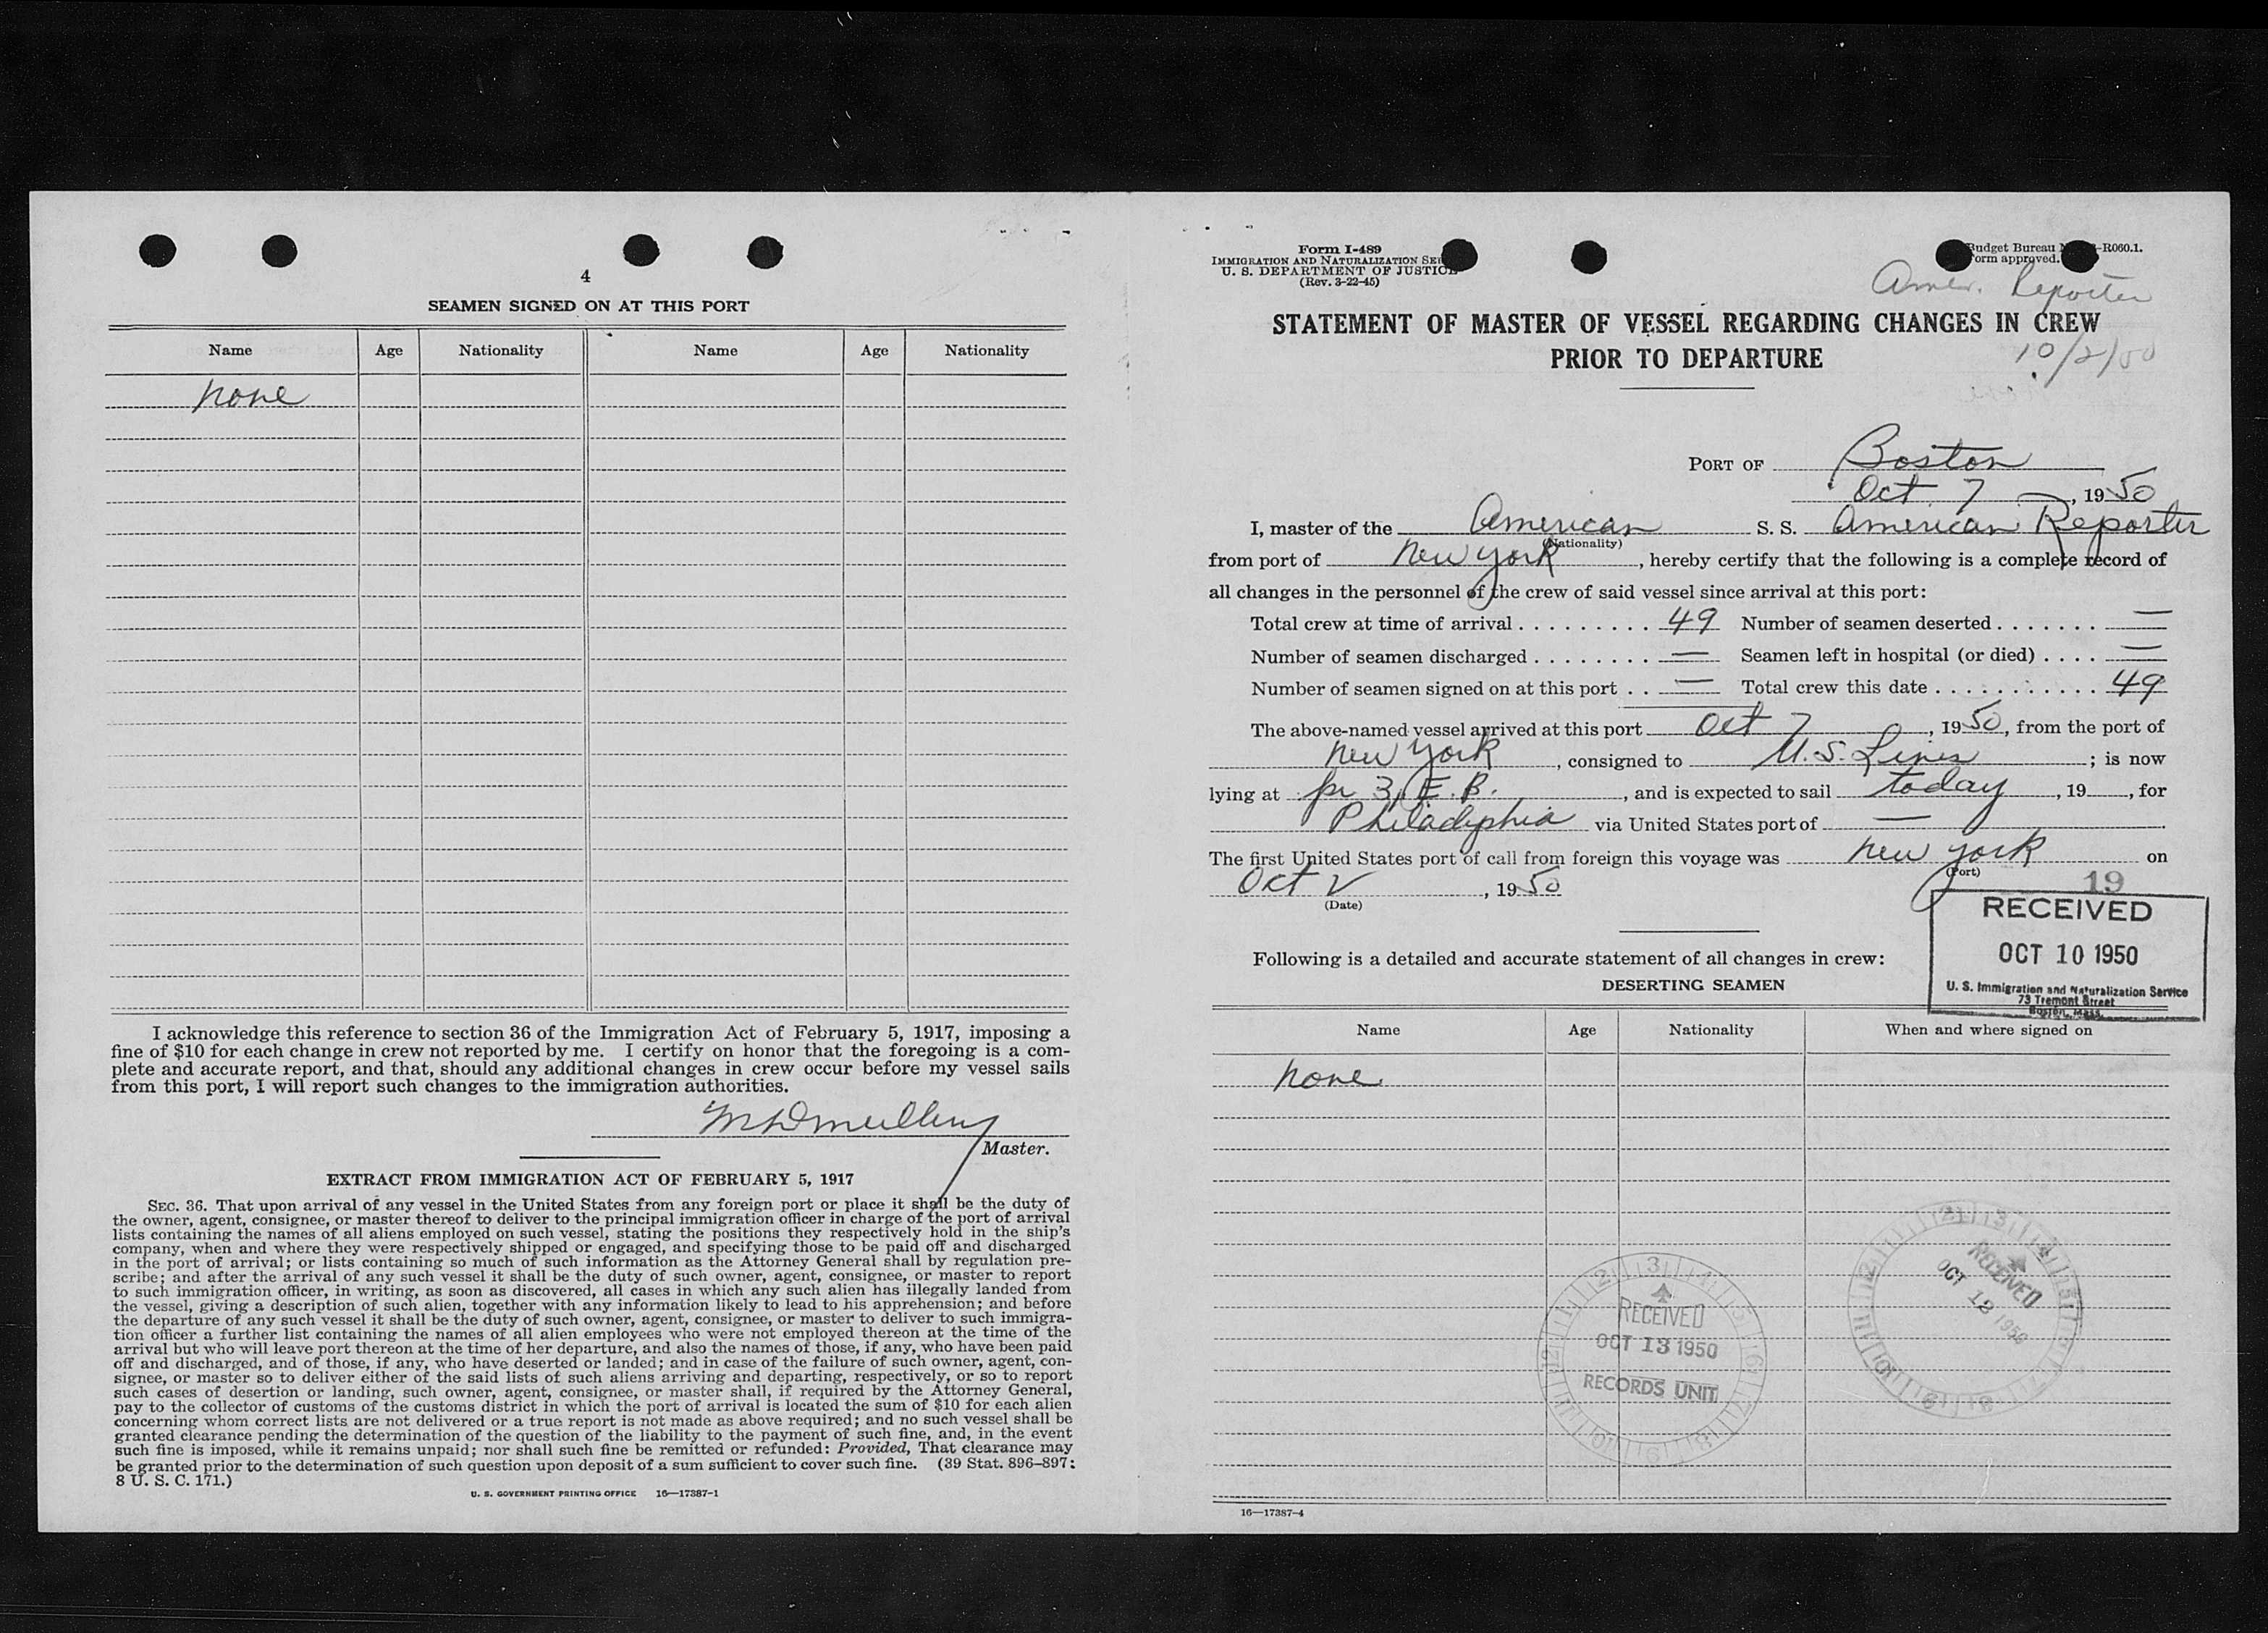 4
SEAMEN SIGNED ON AT THIS PORT
Name Age Nationality Name Age Nationality
None
I acknowledge this reference to section 36 of the Immigration Act of February 5, 1917, imposing a
fine of $10 for each change in crew not reported by me. I certify on honor that the foregoing is a com-
plete and accurate report, and that, should any additional changes in crew occur before my vessel sails
from this port, I will report such changes to the immigration authorities.
Master.
EXTRACT FROM IMMIGRATION ACT OF FEBRUARY 5, 1917
SEC. 36. That upon arrival of any vessel in the United States from any foreign port or place it shall be the duty of
the owner, agent, consignee, or master thereof to deliver to the principal immigration officer in charge of the port of arrival
lists containing the names of all aliens employed on such vessel, stating the positions they respectively hold in the ship's
company, when and where they were respectively shipped or engaged, and specifying those to be paid off and discharged
in the port of arrival; or lists containing so much of such information as the Attorney General shall by regulation pre-
scribe; and after the arrival of any such vessel it shall be the duty of such owner, agent, consignee, or master to report
to such immigration officer, in writing, as soon as discovered, all cases in which any such alien has illegally landed from
the vessel, giving a description of such alien, together with any information likely to lead to his apprehension; and before
the departure of any such vessel it shall be the duty of such owner, agent, consignee, or master to deliver to such immigra-
tion officer a further list containing the names of all alien employees who were not employed thereon at the time of the
arrival but who will leave port thereon at the time of her departure, and also the names of those, if any, who have been paid
off and discharged, and of those, if any, who have deserted or landed; and in case of the failure of such owner, agent, con-
signee, or master so to deliver either of the said lists of such aliens arriving and departing, respectively, or so to report
such cases of desertion or landing, such owner, agent, consignee, or master shall, if required by the Attorney General,
pay to the collector of customs of the customs district in which the port of arrival is located the sum of $10 for each alien
concerning whom correct lists are not delivered or a true report is not made as above required; and no such vessel shall be
granted clearance pending the determination of the question of the liability to the payment of such fine, and, in the event
such fine is imposed, while it remains unpaid; nor shall such fine be remitted or refunded: Provided, That clearance may
be granted prior to the determination of such question upon deposit of a sum sufficient to cover such fine. (39 Stat. 896–897;
8 U. S. C. 171.)
U. S. GOVERNMENT PRINTING OFFICE 16—17387-1
Form I-489
IMMIGRATION AND NATURALIZATION
U. S. DEPARTMENT OF JUSTICE
(Rev. 3-22-45)
Budget Bureau -R060.1.
Form approved.
Amer. Reporter
STATEMENT OF MASTER OF VESSEL REGARDING CHANGES IN CREW
PRIOR TO DEPARTURE
10/2/50
PORT OF Boston
Oct 7, 1950
I, master of the American S. S. American Reporter
(Nationality)
from port of New York, hereby certify that the following is a complete record of
all changes in the personnel of the crew of said vessel since arrival at this port:
Total crew at time of arrival . . . . . . . . . 49 Number of seamen deserted . . . . . . . —
Number of seamen discharged . . . . . . . . — Seamen left in hospital (or died) . . . . —
Number of seamen signed on at this port . . — Total crew this date . . . . . . . . . . . . 49
The above-named vessel arrived at this port Oct 7, 1950, from the port of
New York, consigned to U.S. Lines; is now
lying at pr 3, E. B., and is expected to sail today, 19 , for
Philadelphia via United States port of —
The first United States port of call from foreign this voyage was New York on
(Port)
Oct 2, 1950
(Date)
19
RECEIVED
OCT 10 1950
U. S. Immigration and Naturalization Service
73 Tremont Street
Boston, Mass.
Following is a detailed and accurate statement of all changes in crew:
DESERTING SEAMEN
Name Age Nationality When and where signed on
None
RECEIVED
OCT 13 1950
RECORDS UNIT
RECEIVED
OCT 12 1950
16—17387-4